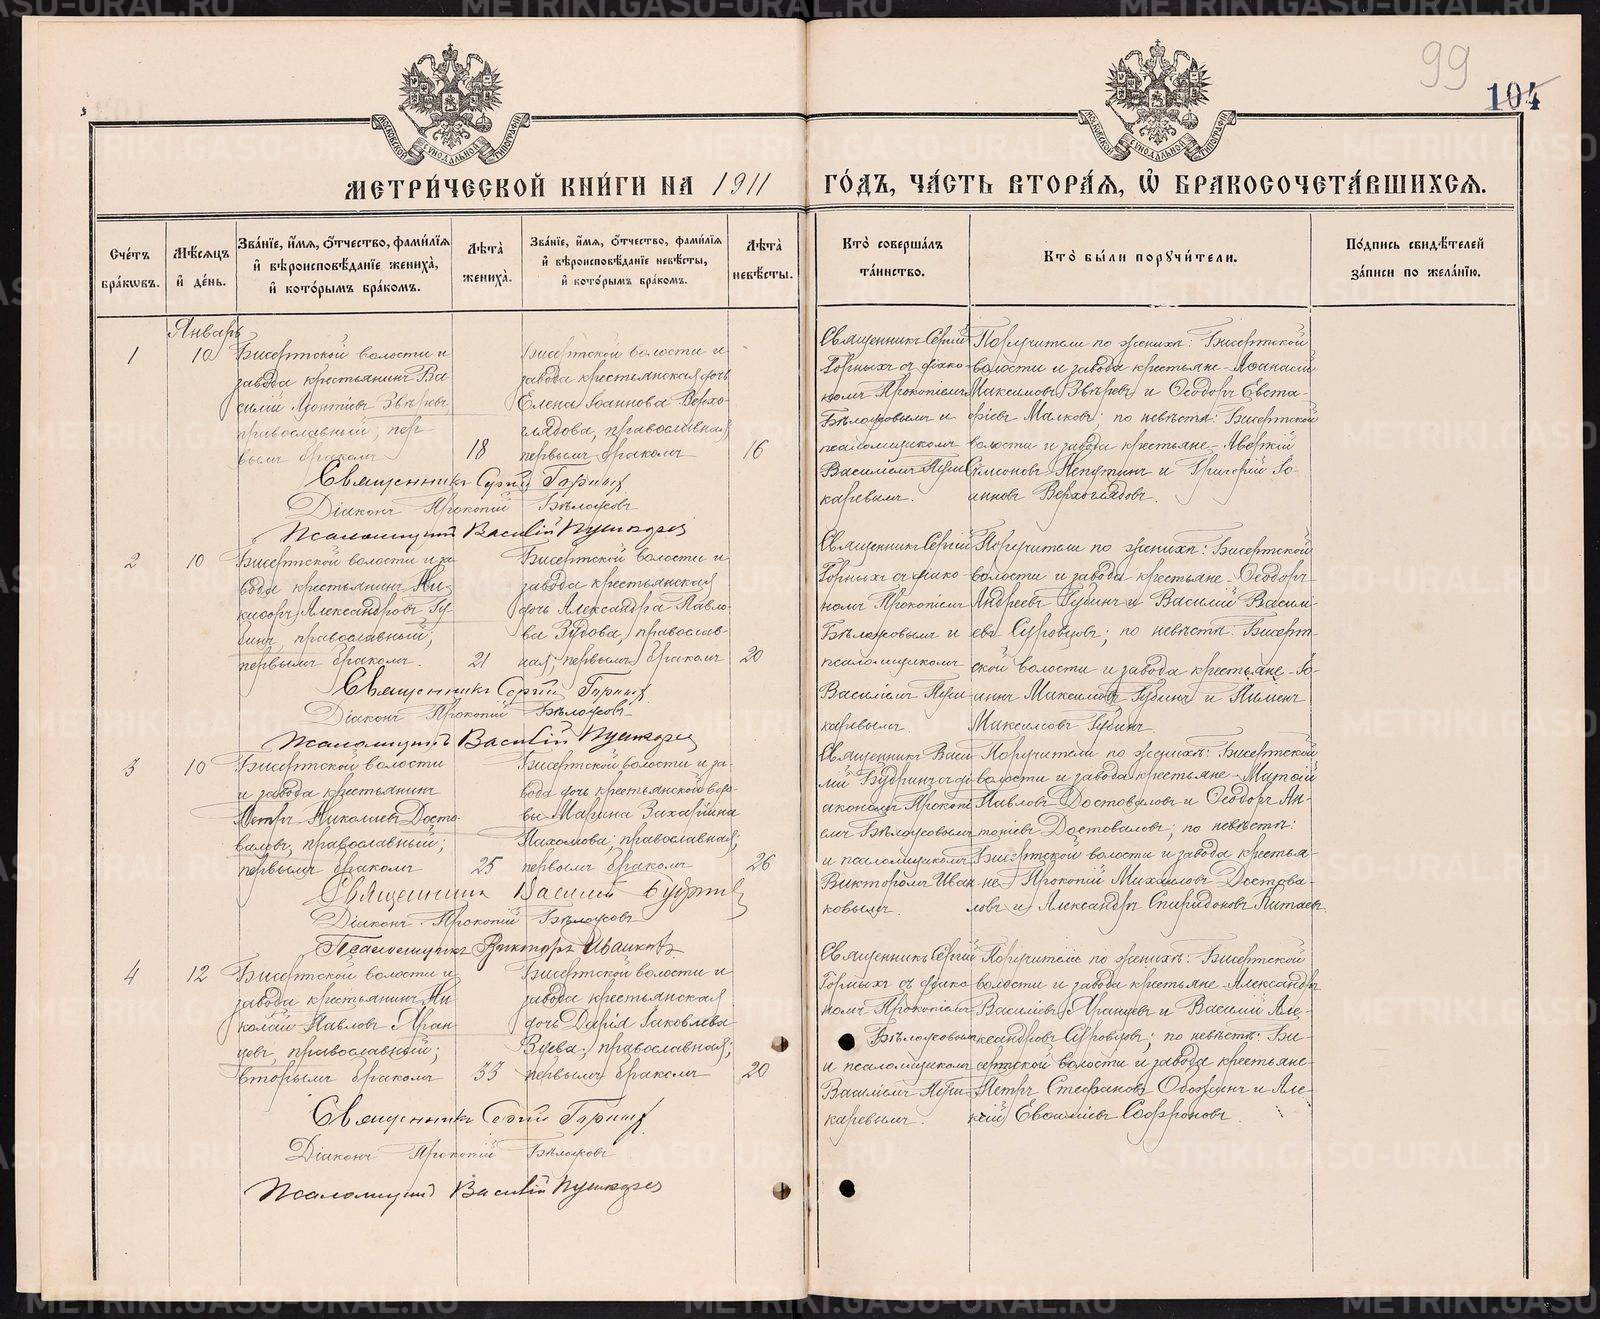 99
104
МОСКОВСКОЙ СѴНОДАЛЬНОЙ ТИПОГРАФІИ
МОСКОВСКОЙ СѴНОДАЛЬНОЙ ТИПОГРАФІИ
МЕТРИ́ЧЕСКОЙ КНИ́ГИ НА 1911 ГО́ДЪ, ЧА́СТЬ ВТОРА́Я, Ѽ БРАКОСОЧЕТА́ВШИХСЯ.
Сче́тъ бра́кωвъ.
Мѣ́сяцъ и҆ де́нь.
Зва́нїе, и҆́мя, ѻ҆́тчество, фами́лїя
и҆ вѣроисповѣ́данїе жениха̀,
и҆ кото́рымъ бра́комъ.
Лѣ́та̀ жениха̀.
Зва́нїе, и҆́мя, ѻ҆́тчество, фами́лїя
и҆ вѣроисповѣ́данїе невѣ́сты,
и҆ кото́рымъ бра́комъ.
Лѣ́та̀ невѣ́сты.
Кто̀ соверша́лъ
та́инство.
Кто̀ бы́ли порꙋчи́тели.
По́дпись свидѣ́телей
за́писи по жела́нїю.
Январь
1
10
Бисертской волости и
завода крестьянинъ Ва
силій Леонтіевъ Звѣревъ
православный, пер
вымъ бракомъ
18
Бисертской волости и
завода крестьянская дочь
Елена Іоаннова Верхо-
глядова, православная,
первымъ бракомъ
16
Священникъ Сергій
Горныхъ съ діако-
номъ Прокопіемъ
Бѣлоусовымъ и
псаломщикомъ
Василіемъ Пуш
каревымъ.
Поручители по женихѣ: Бисертской
волости и завода крестьяне - Аѳанасій
Максимовъ Звѣревъ и Ѳеодоръ Евста-
фіевъ Малковъ; по невѣстѣ: Бисертской
волости и завода крестьяне -
Симеоновъ и Григорій Іо-
анновъ Верхоглядовъ.
Священникъ Сергій Горныхъ
Діаконъ Прокопій Бѣлоусовъ
Псаломщикъ Василій Пушкаревъ
2
10
Бисертской волости и за
вода крестьянинъ Ни-
кифоръ Александровъ Гу-
бинъ, православный;
первымъ бракомъ.
21
Бисертской волости и
завода крестьянская
дочь Александра Павло-
ва Зудова, православ-
ная; первымъ бракомъ
20
Священникъ Сергій
Горныхъ съ діако-
номъ Прокопіемъ
Бѣлоусовымъ и
псаломщикомъ
Василіемъ Пуш
каревымъ.
Поручители по женихѣ: Бисертской
волости и завода крестьяне - Ѳеодоръ
Андреевъ Губинъ и Василій Василі-
евъ Суровцовъ; по невѣстѣ: Бисерт-
ской волости и завода крестьяне - Іо-
аннъ Максимовъ Губинъ и Пименъ
Максимовъ Губинъ
Священникъ Сергій Горныхъ
Діаконъ Прокопій Бѣлоусовъ
Псаломщикъ Василій Пушкаревъ
3
10
Бисертской волости
и завода крестьянинъ
Петръ Николаевъ Досто-
валовъ, православный;
первымъ бракомъ
25
Бисертской волости и за-
вода дочь крестьянской вдо-
вы Марина Захарьина
Пахомова; православная;
первымъ бракомъ
26
Священникъ Васи
лій Будринъ съ ді
акономъ Прокопі
емъ Бѣлоусовымъ
и псаломщикомъ
Викторомъ Иван
ковымъ.
Поручители по женихѣ: Бисертской
волости и завода крестьяне -
Павловъ Достоваловъ и Ѳеодоръ Ан-
тоніевъ Достоваловъ; по невѣстѣ:
Бисертской волости и завода крестья-
не - Прокопій Михаиловъ Достова-
ловъ и Александръ Спиридоновъ
Священникъ Василій Будринъ
Діаконъ Прокопій Бѣлоусовъ
Псаломщикъ Викторъ Иванковъ
4
12
Бисертской волости и
завода крестьянинъ Ни
колай Павловъ Аран-
цевъ, православный;
вторымъ бракомъ
33
Бисертской волости и
завода крестьянская
дочь Дарія Іаковлева
православная;
первымъ бракомъ
20
Священникъ Сергій
Горныхъ съ діако
номъ Прокопіемъ
Бѣлоусовымъ
и псаломщикомъ
Василіемъ Пуш
каревымъ.
Поручители по женихѣ: Бисертской
волости и завода крестьяне - Александръ
Василіевъ Аранцевъ и Василій Але-
ксандровъ Суровцовъ; по невѣстѣ: Би-
сертской волости и завода крестьяне-
Петръ Стефановъ и Але-
ксій Софроновъ.
Священникъ Сергій Горныхъ
Діаконъ Прокопій Бѣлоусовъ
Псаломщикъ Василій Пушкаревъ
METRIKI.GASO-URAL.RU